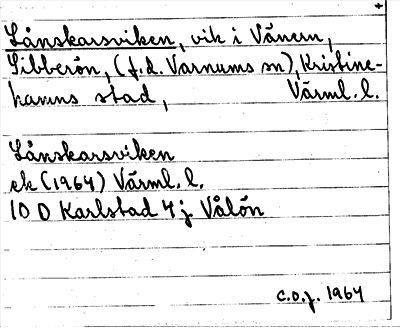 Lånskarsviken, vik i Vänern,
Sibberön, (f.d. Varnums sn), Kristine-
hamns stad, Värml. l.
Lånskarsviken
ek (1964) Värml. l.
10 D Karlstad 4j Vålön
C.O.J. 1964